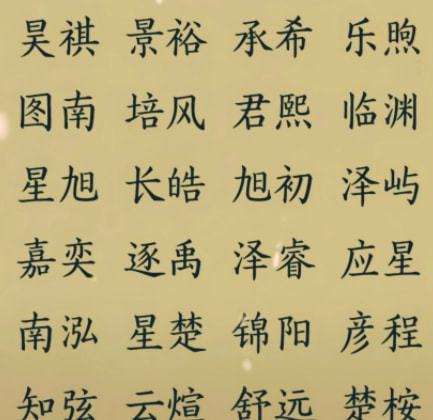 昊祺 景裕 承希 乐煦
图南 培风 君熙 临渊
星旭 长皓 旭初 泽屿
嘉奕 逐禹 泽睿 应星
南泓 星楚 锦阳 彦程
知弦 云煊 舒远 楚桉